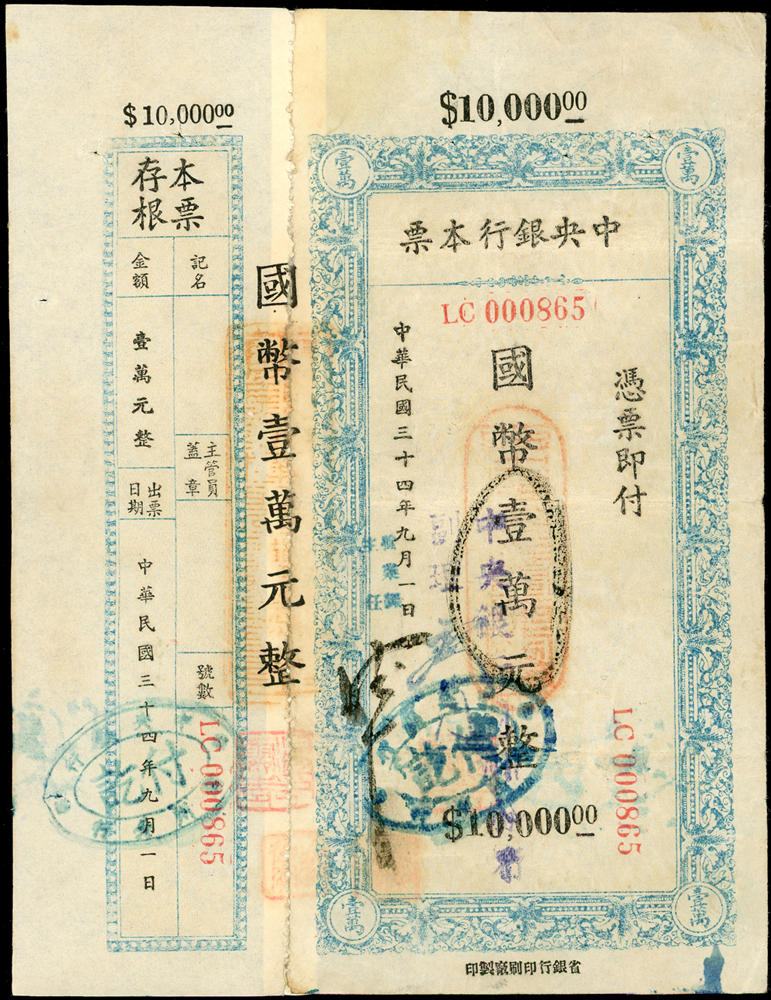 $10,000.00
壹萬
壹萬
中央銀行本票
LC 000865
憑票即付
國幣壹萬元整
中華民國三十四年九月一日
中央銀
副理
付訖
$10,000.00
LC 000865
壹萬
壹萬
省銀行印刷廠製印
國幣壹萬元整
$10,000.00
本票存根
記名
金額
壹萬元整
主管員蓋章
出票日期
中華民國三十四年九月一日
號數
LC 000865
付訖